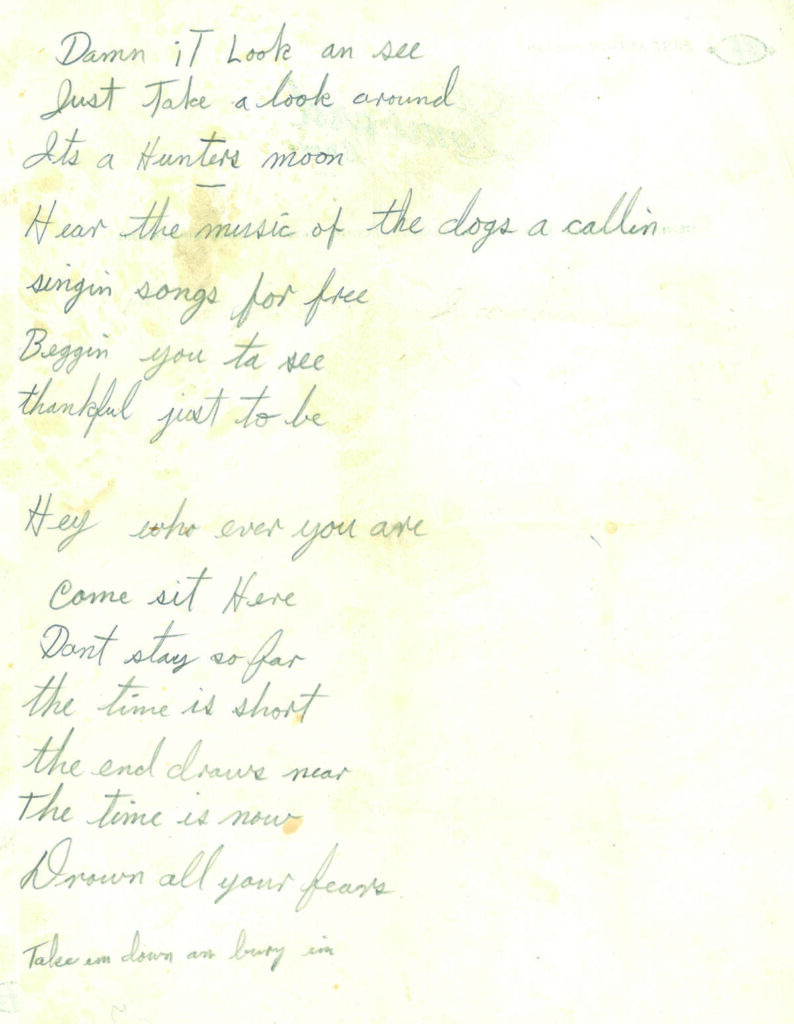 Damn iT Look an see
Just Take a look around
Its a Hunters moon
Hear the music of the dogs a callin
singin songs for free
Beggin you ta see
thankful just to be
Hey who ever you are
Come sit Here
Dont stay so far
the time is short
the end draws near
The time is now
Drown all your fears
Take em down an bury em